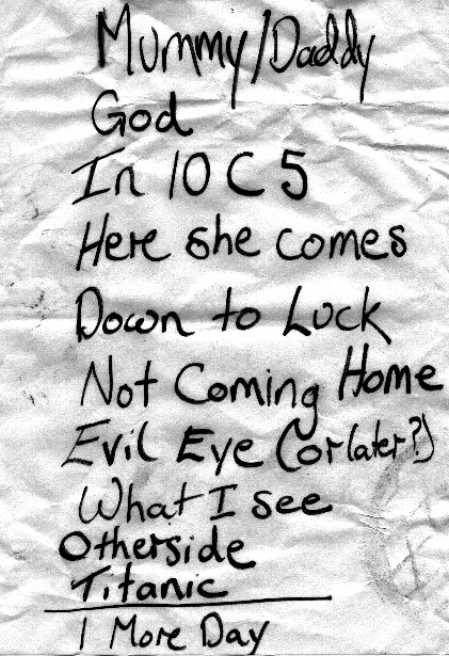 Mummy/Daddy
God
In 10 C 5
Here she comes
Down to Luck
Not Coming Home
Evil Eye (or later?)
What I see
Otherside
Titanic
1 More Day